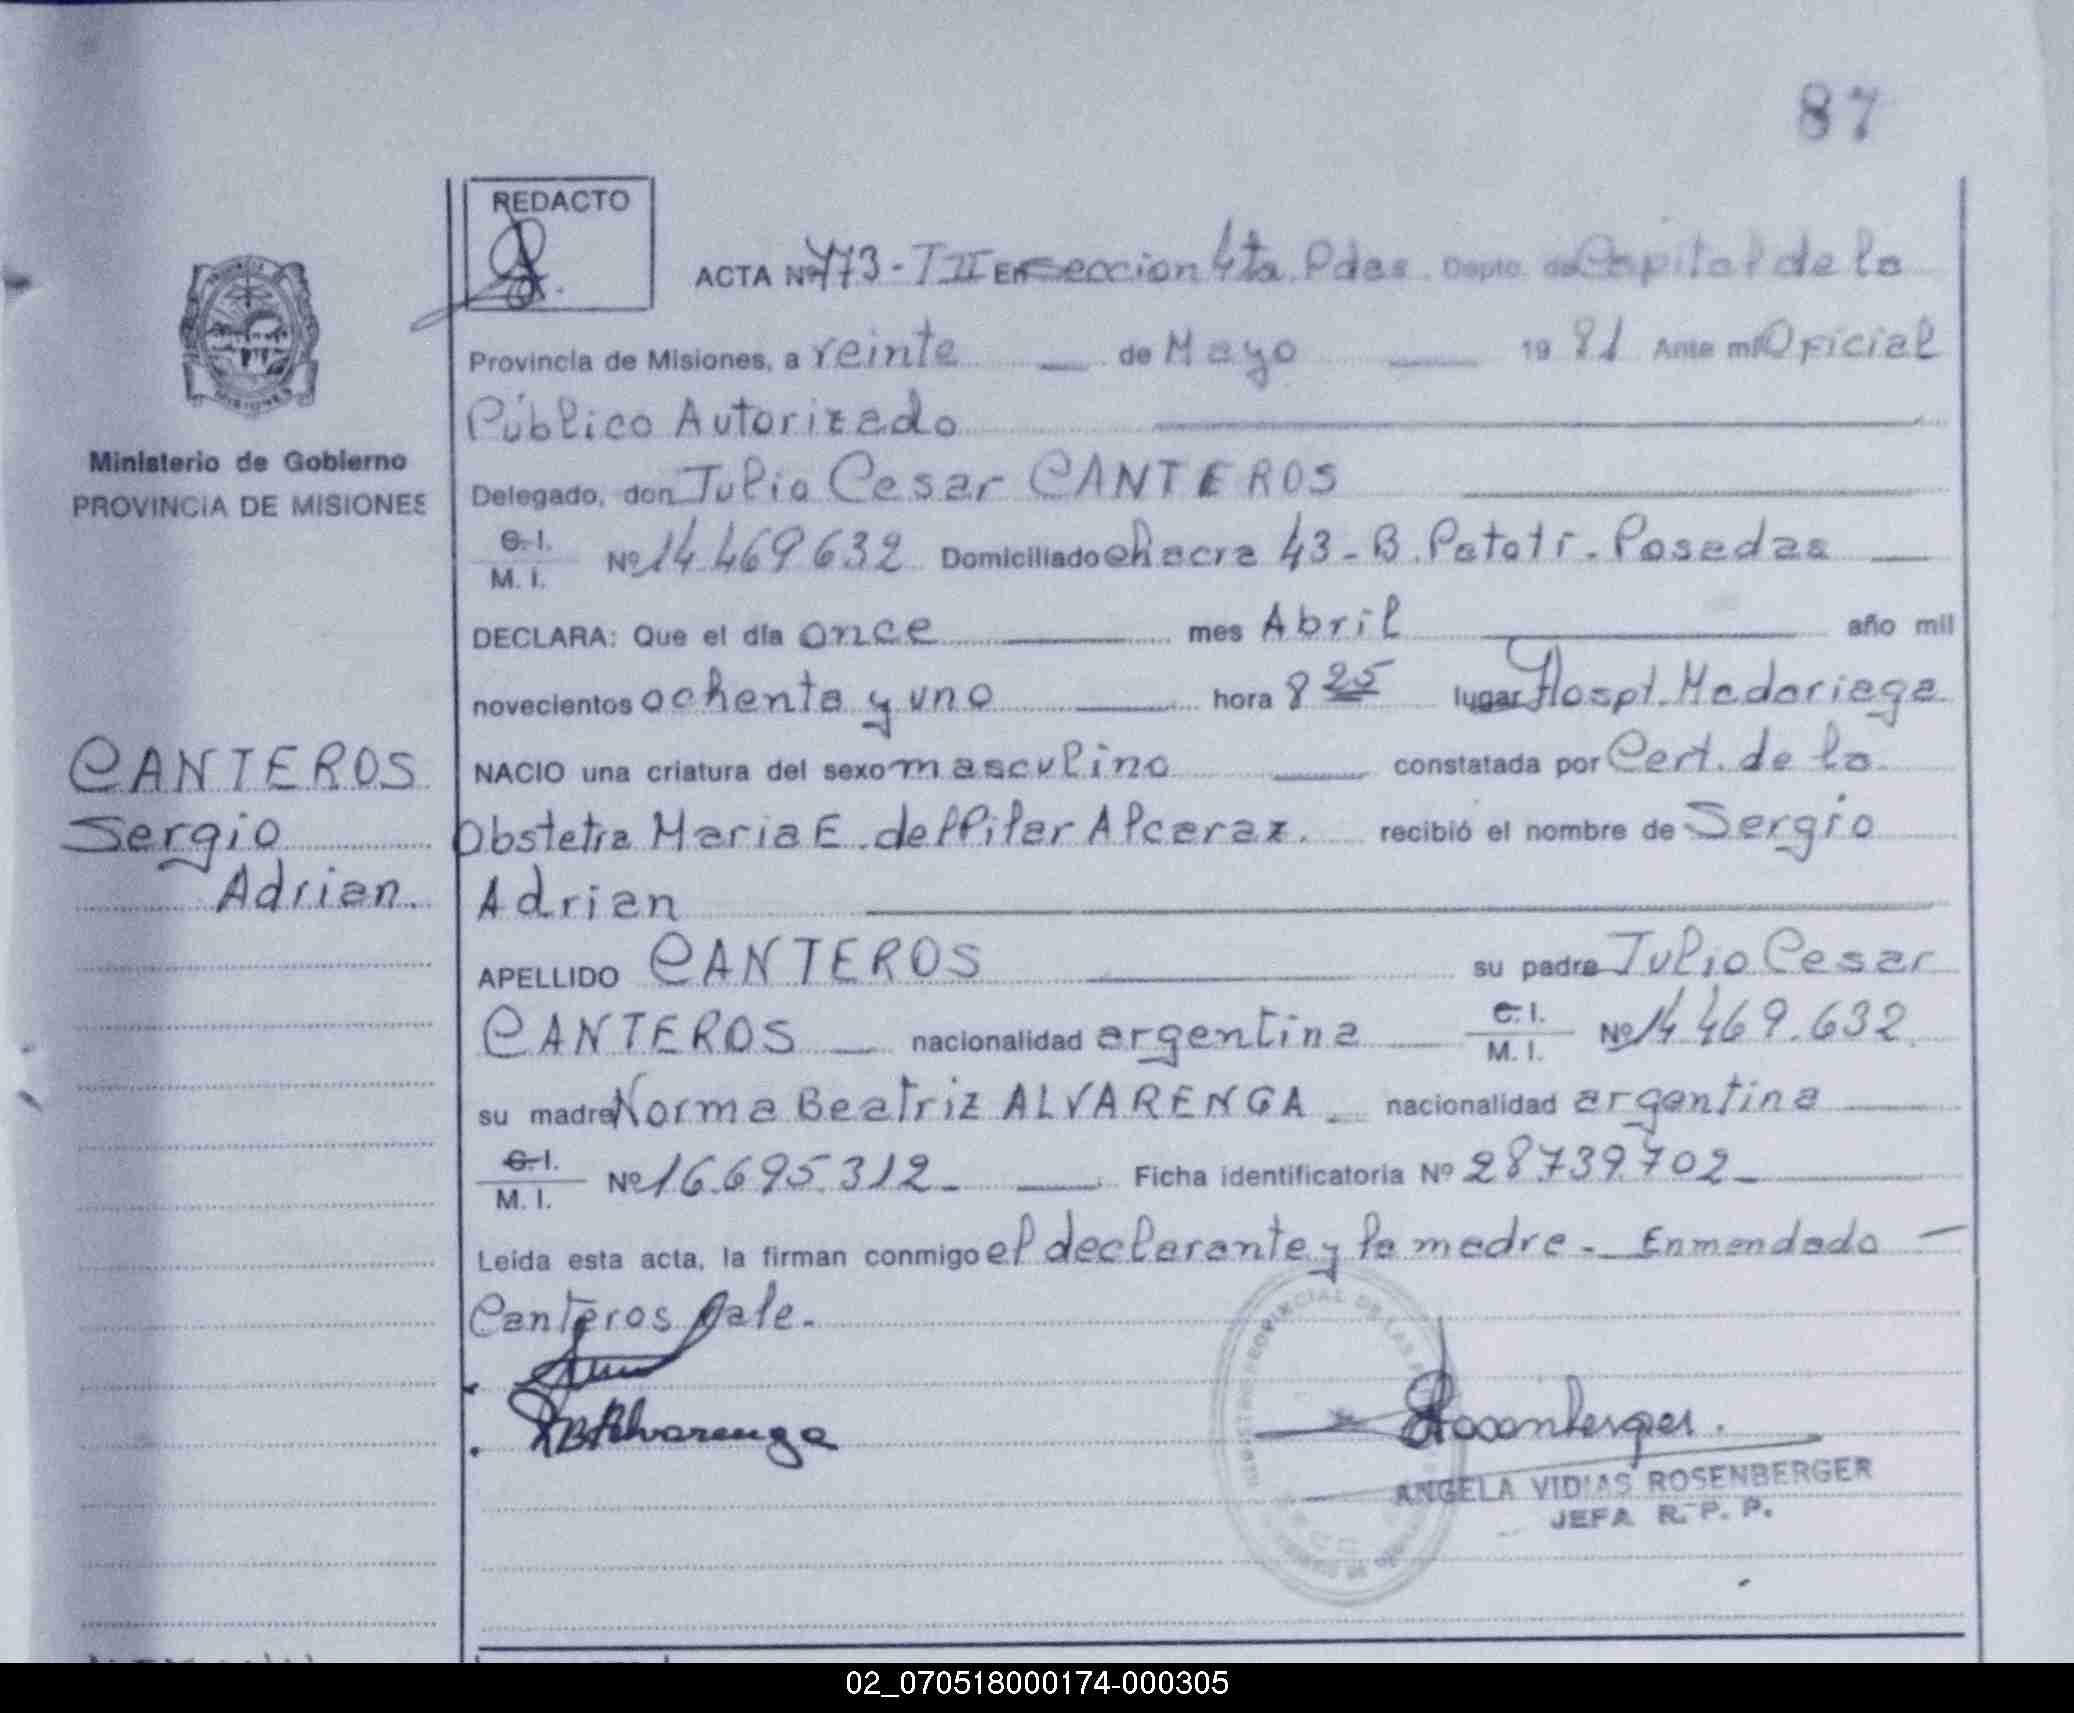 87
REDACTO
ACTA Nº 773 - T III En seccion 4ta Pdas. Dpto. de Capital de la
Provincia de Misiones, a veinte de Mayo 1981 Ante mi Oficial
Público Autorizado
Ministerio de Gobierno
PROVINCIA DE MISIONES
Delegado, don Julio Cesar CANTEROS
C. I.
M. I. Nº 14.469.632 Domiciliado chacra 43 - B. Patotí - Posadas
DECLARA: Que el día once mes Abril año mil
novecientos ochenta y uno hora 8 25 lugar Hospt. Madariaga
CANTEROS
Sergio
Adrian.
NACIO una criatura del sexo masculino constatada por Cert. de la
Obstetra Maria E. del Pilar Alcaraz. recibió el nombre de Sergio
Adrian
APELLIDO CANTEROS su padre Julio Cesar
CANTEROS nacionalidad argentina C. I. M. I. Nº 14.469.632
su madre Norma Beatriz ALVARENGA nacionalidad argentina
C. I.
M. I. Nº 16.695.312 - Ficha identificatoria Nº 28739.702
Leida esta acta, la firman conmigo el declarante y la madre - Enmendado -
Canteros Vale.
NBAlvarenga
Rosenberger.
ANGELA VIDIAS ROSENBERGER
JEFA R. P. P.
02_070518000174-000305